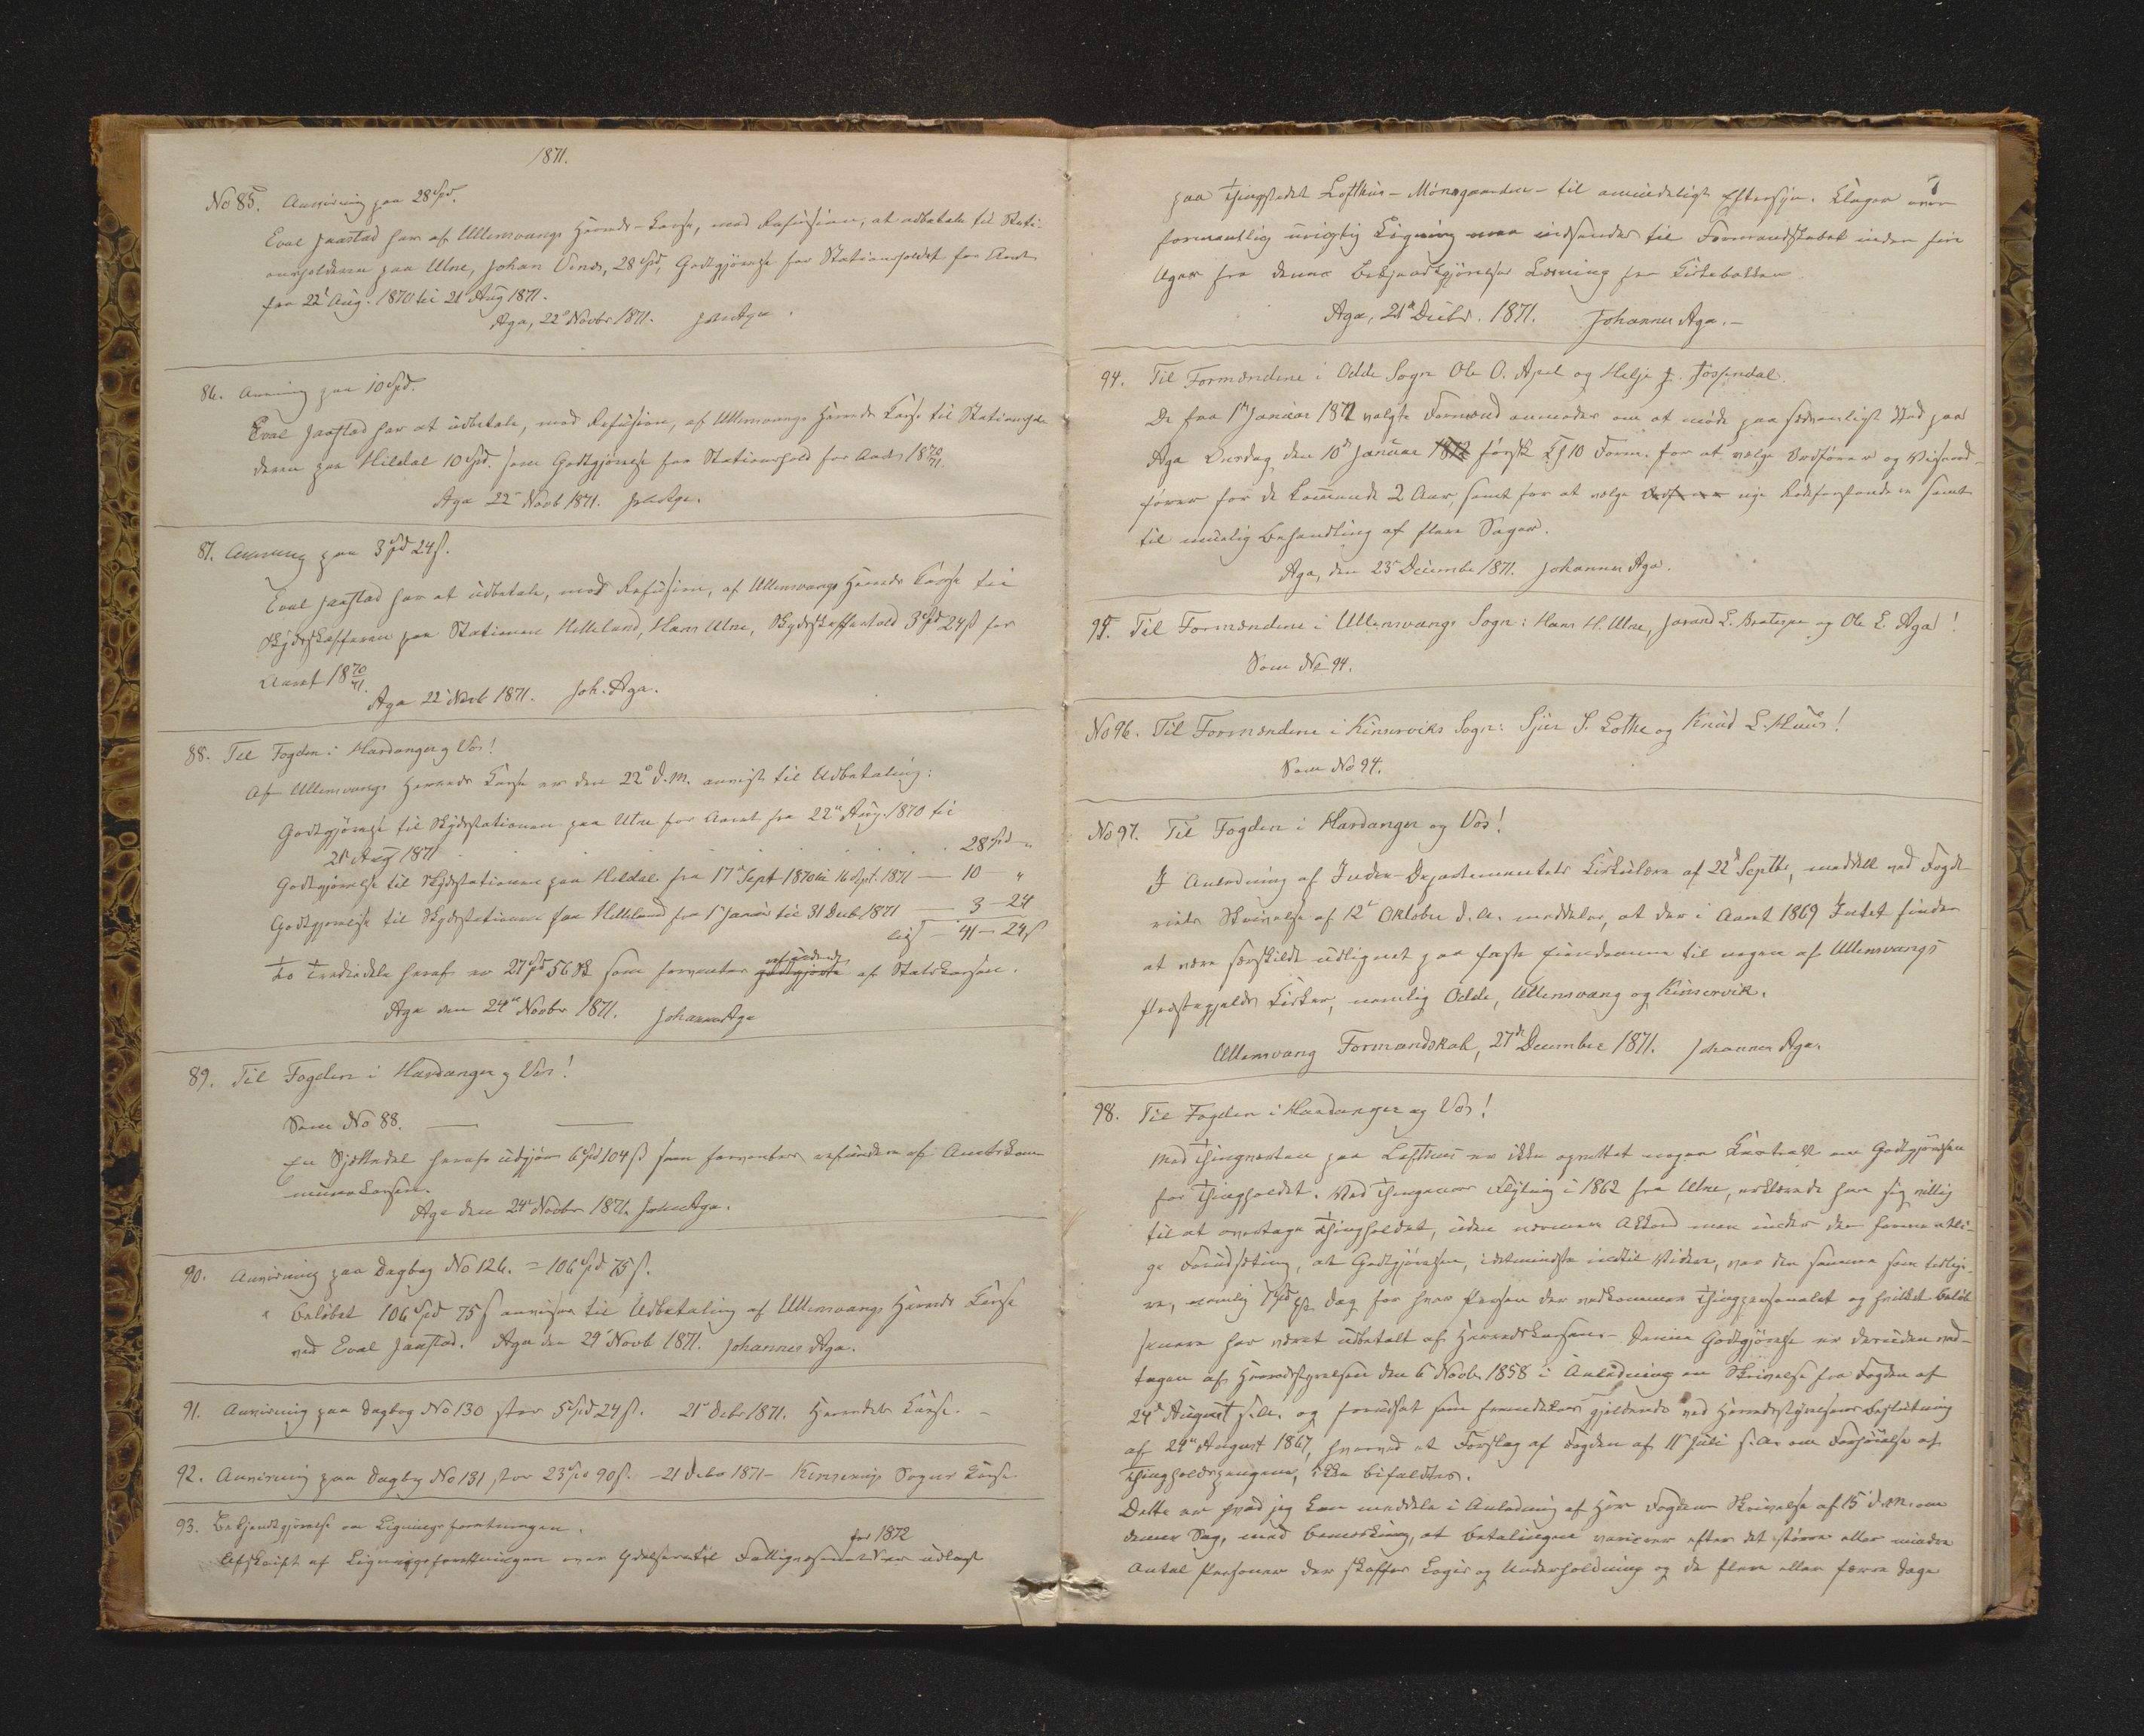 1871.
No 85. Anvisning paa 28 Spd.
Eval Jaastad har af Ullensvangs Herreds-Kasse, mod Refusion, at udbetale til Stati-
onsholderen paa Utne, Johan Vines, 28 Spd, Godtgjørelse for Stationsholdet for Aaret
fra 22' Aug. 1870 til 21' Aug 1871.
Aga, 22' Novbr 1871. Joh Aga.
86. Anvisning paa 10 Spd.
Eval Jaastad har at udbetale, mod Refusion, af Ullensvangs Herreds Kasse til Stationshol-
deren paa Hildal 10 Spd. som Godtgjørelse for Stationshold for Aaret 1870/71.
Aga 22' Novb 1871. Joh Aga.
87. Anvisning paa 3 Spd 24 ß.
Eval Jaastad har at udbetale, mod Refusion, af Ullensvangs Herreds Kasse til
Skydsskafferen paa Stationen Helleland, Hans Utne, Skydsskafferhold 3 Spd 24 ß for
Aaret 1870/71.
Aga 22' Novb 1871. Joh. Aga.
88. Til Fogden i Hardanger og Vos!
Af Ullensvangs Herreds Kasse er den 22' d.M. anvist til Udbetaling:
Godtgjørelse til Skydsstationen paa Utne for Aaret fra 22' Aug. 1870 til
21' Aug 1871 . . . . . . . 28 Spd - "
Godtgjørelse til Skydsstationen paa Hildal fra 17' Sept 1870 til 16 Sept. 1871 — 10 - "
Godtgjørelse til Skydsstationen paa Helleland fra 1' Januar til 31 Decb 1871 — 3 - 24
lig — 41 - 24 ß
To Trediedele heraf er 27 Spd 56 Sk som forventes godtgjorte refunderet af Statskassen.
Aga den 24' Novbr 1871. Johannes Aga
89. Til Fogden i Hardanger og Vos!
Som No 88. — —
En Sjettedel heraf udgjør 6 Spd 104 ß som forventes refunderet af Amtskom-
munekassen.
Aga den 24' Novbr 1871. Joh Aga.
90. Anvisning paa Dagbog No 126. = 106 Spd 75 ß.
Beløbet 106 Spd 75 ß anvises til Udbetaling af Ullensvangs Herreds Kasse
ved Eval Jaastad. Aga den 29' Novb 1871. Johannes Aga.
91. Anvisning paa Dagbog No 130 stor 5 Spd 24 ß. 21' Debr 1871. Herredets Kasse. —
92. Anvisning paa Dagbog No 131 stor 23 Spd 90 ß. - 21 Debr 1871 - Kinserviks Sogns Kasse
93. Bekjendtgjørelse om Ligningsforretningen.
Afskrift af Ligningsforretningen over Ydelserne til Fattigvæsenet for 1872 er udlagt
7
paa Thingstedet Lofthus - Mönsgaarden - til almindeligt Eftersyn. Klager over
formentlig urigtig Ligning maa indsendes til Formandskabet inden fire
Uger fra denne Bekjendtgjørelses Læsning fra Kirkebakken
Aga, 21' Decbr. 1871. Johannes Aga. -
94. Til Formændene i Odde Sogn Ole O. Apel og Helje J. Jøsendal.
De fra 1' Januar 1872 valgte Formænd anmodes om at møde paa sædvanligt Sted paa
Aga Onsdag den 10' Januar 1872 førstk Kl 10 Form. for at vælge Ordfører og Viseord-
fører for de kommende 2 Aar, samt for at vælge nye Rodeforstandere samt
til muelig Behandling af flere Sager.
Aga, den 23' December 1871. Johannes Aga.
95. Til Formændene i Ullensvangs Sogn: Hans H. Utne, Jarand L. Bratespe og Ole L. Aga!
Som No 94.
No 96. Til Formændene i Kinserviks Sogn: Sjur S. Lothe og Knud L. Huus!
Som No 94.
No 97. Til Fogden i Hardanger og Vos!
I Anledning af Indre-Departementets Cirkulære af 22' Septbr, meddelt ved Fogde-
riets Skrivelse af 12' Oktober d.A. meddeles, at der i Aaret 1869 Intet findes
at være særskildt udlignet paa faste Eiendomme til nogen af Ullensvangs
Præstegjelds Kirker, nemlig Odde, Ullensvang og Kinservik.
Ullensvang Formandskab, 27' December 1871. Johannes Aga.
98. Til Fogden i Hardanger og Vos!
Med Thingverten paa Lofthus er ikke oprettet nogen Kontrakt om Godtgjørelsen
for Thingholdet. Ved Thingenes Flytning i 1862 fra Utne, erklærede han sig villig
til at overtage Thingholdet, uden nærmere Akkord men under den formentli-
ge Forudsætning, at Godtgjørelsen, idetmindste indtil Videre, var den samme som tidlige-
re, nemlig 1 Spd pr Dag for hver Person der vedkommer Thingpersonalet og hvilket Beløb
senere har været udbetalt af Herredskassen. - Denne Godtgjørelse er desuden ved-
tagen af Herredsstyrelsen den 6 Novb. 1858 i Anledning en Skrivelse fra Fogden af
24' August s.A. og forudsat som fremdeles gjeldende ved Herredsstyrelsens Beslutning
af 24' August 1867, hvorved et Forslag af Fogden af 11' Juli s.A. om Forhøielse af
Thingholdspengene, ikke bifaldtes.
Dette er hvad jeg kan meddele i Anledning af Herr Fogdens Skrivelse af 15' d.M. om
denne Sag, med Bemærkning, at Betalingen varierer efter det større eller mindre
Antal Personer der skaffes Logis og Underholdning og de flere eller færre Dage